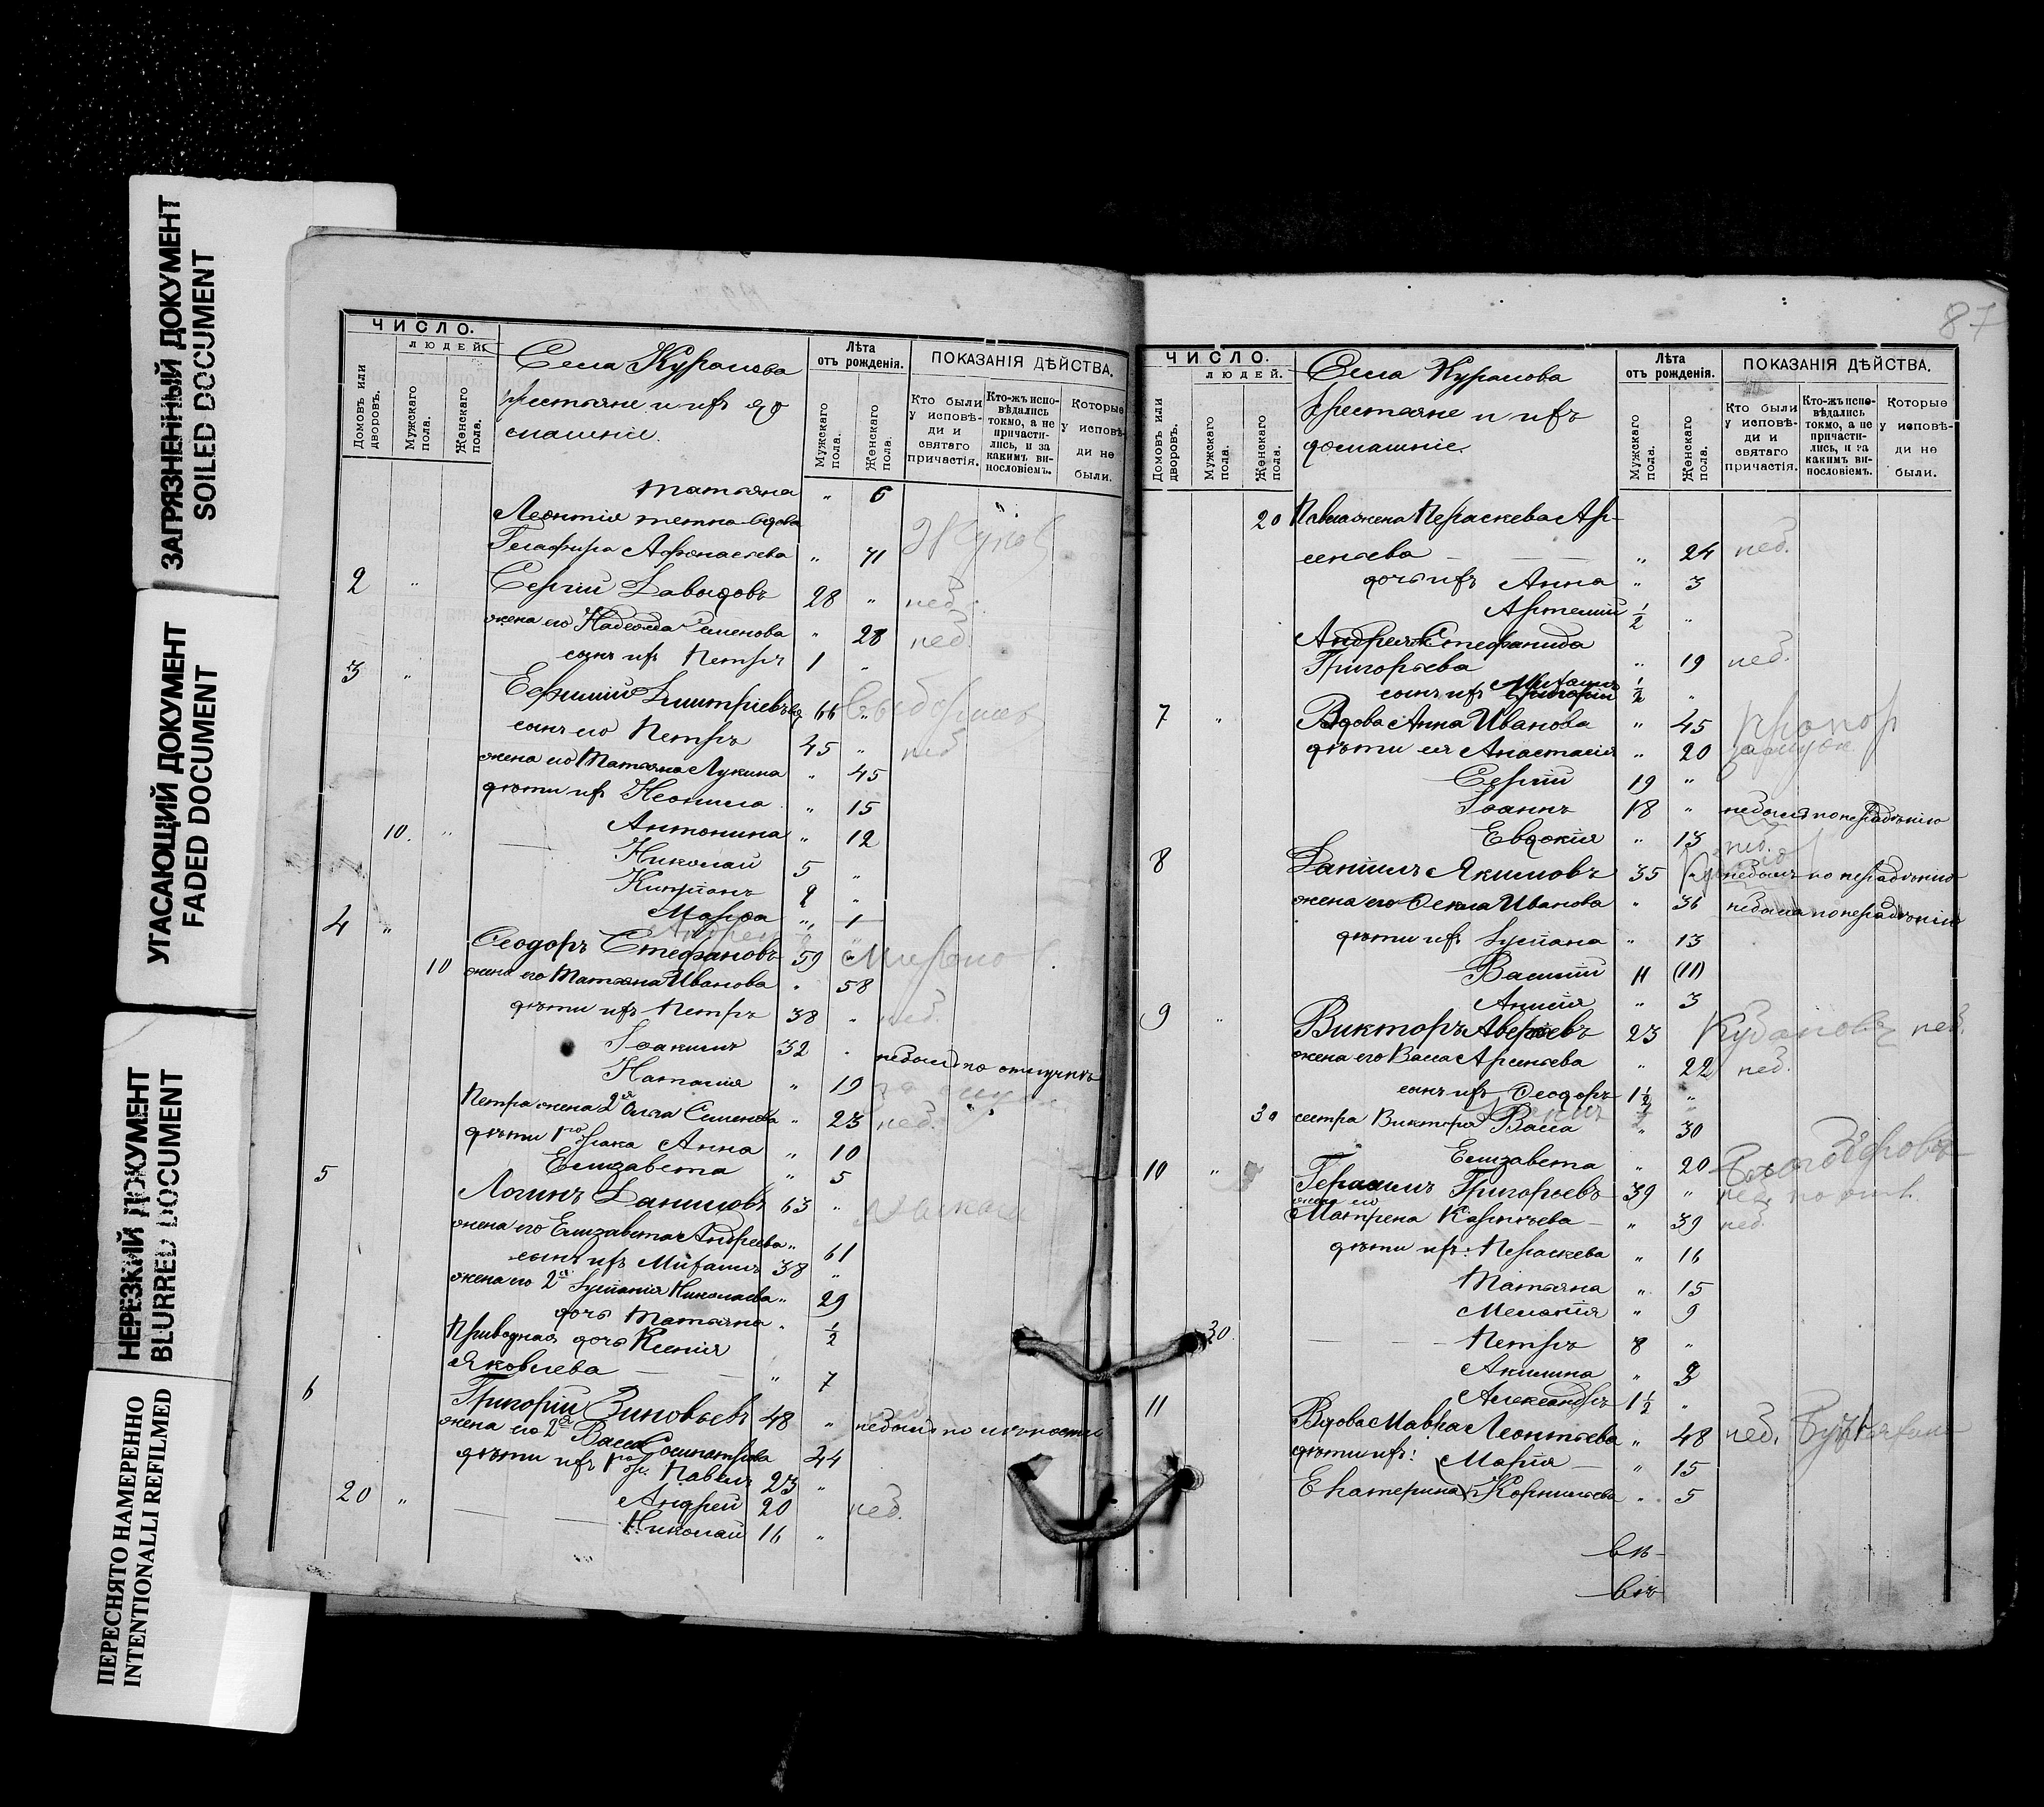 ЗАГРЯЗНЕННЫЙ ДОКУМЕНТ
SOILED DOCUMENT
УГАСАЮЩИЙ ДОКУМЕНТ
FADED DOCUMENT
НЕРЕЗКИЙ ДОКУМЕНТ
BLURRED DOCUMENT
ПЕРЕСНЯТО НАМЕРЕННО
INTENTIONALLI REFILMED
ЧИСЛО.
людей.
Домовъ или дворовъ.
Мужскаго пола.
Женскаго пола.
Села Курапова
крестьяне и ихъ до
машніе.
Лѣта
отъ рожденія.
Мужскаго пола.
Женскаго пола.
ПОКАЗАНІЯ ДѢЙСТВА.
Кто были у исповѣди и святаго причастія.
Кто-жъ исповѣдались токмо, а не причастились, и за какимъ винословіемъ.
Которые у исповѣди не были.
Татьяна " 6
Леонтія тетка вдова
Глафира Афонасьева " 71
2 " Сергій Давыдовъ 28 " неб.
жена его Надежда Семенова " 28 неб.
сынъ ихъ Петръ 1 "
3 " Ефимій Димитріевъ 66 "
сынъ его Петръ 45 " неб
жена его Татьяна Лукина " 45
дѣти ихъ Неонила " 15
10. " Антонина " 12
Николай 5 "
Кипріанъ 2 "
Марѳа " 1
Андрей
4 " Ѳеодоръ Стефановъ 59 "
10 жена его Татьяна Иванова " 58
дѣти ихъ Петръ 38 " неб.
Іоакимъ 32 " небылъ по отлучкѣ
Наталія " 19
Петра жена 2я Ольга Семенова " 23 неб.
дѣти 1го брака Анна " 10
Елизавета " 5
5 Логинъ Даниловъ 63 "
жена его Елизавета Андреева " 61
сынъ ихъ Михаилъ 38 "
жена его 2я Іуліанія Николаева " 29
дочь Татьяна " ½
Приводная дочь Ксенія
Яковлева " 7
6 Григорій Зиновьевъ 48 " небылъ по лѣности
жена его 2я Васса Сосипатрова 44
дѣти ихъ 1го бр. Павелъ 23 "
20 " Андрей 20 неб.
Николай 16 "
87
ЧИСЛО.
людей.
Домовъ или дворовъ.
Мужскаго пола.
Женскаго пола.
Села Курапова
крестьяне и ихъ
домашніе.
Лѣта
отъ рожденія.
Мужскаго пола.
Женскаго пола.
ПОКАЗАНІЯ ДѢЙСТВА.
Кто были у исповѣди и святаго причастія.
Кто-жъ исповѣдались токмо, а не причастились, и за какимъ винословіемъ.
Которые у исповѣди не были.
20 Павла жена Параскева Ар-
сеньева " 24 неб.
дочь ихъ Анна " 3
Артемій ½ "
Андрея ж Стефанида
Григорьева " 19 неб.
сынъ ихъ Михаилъ ½ "
7 " Вдова Анна Иванова " 45
дѣти ея Анастасія " 20 замуж
Сергій 19 "
Іоаннъ 18 " небылъ по нерадѣнію
Евдокія " 13 неб.
8 Даніилъ Якимовъ 35 небылъ по нерадѣнію
жена его Ѳекла Иванова " 36 небыла по нерадѣнію
дѣти ихъ Іуліана " 13
Василій 11 (11)
Анисія " 3
9 " Викторъ Аверьевъ 23 неб.
жена его Васса Арсеньева " 22 неб.
сынъ ихъ Ѳеодоръ 1½ "
30 сестра Виктора Васса " 30
Елизавета " 20
10 " Герасимъ Григорьевъ 39 "
жена его
Матрена Карпѣева " 39 неб.
дѣти ихъ: Параскева " 16
Татьяна " 15
Меланія " 9
30. Петръ 8 "
Акилина " 3
Александръ 1½ "
11 Вдова Мавра Леонтьева " 48 неб.
дѣти ихъ: Марія " 15
Екатерина Корнильева " 5